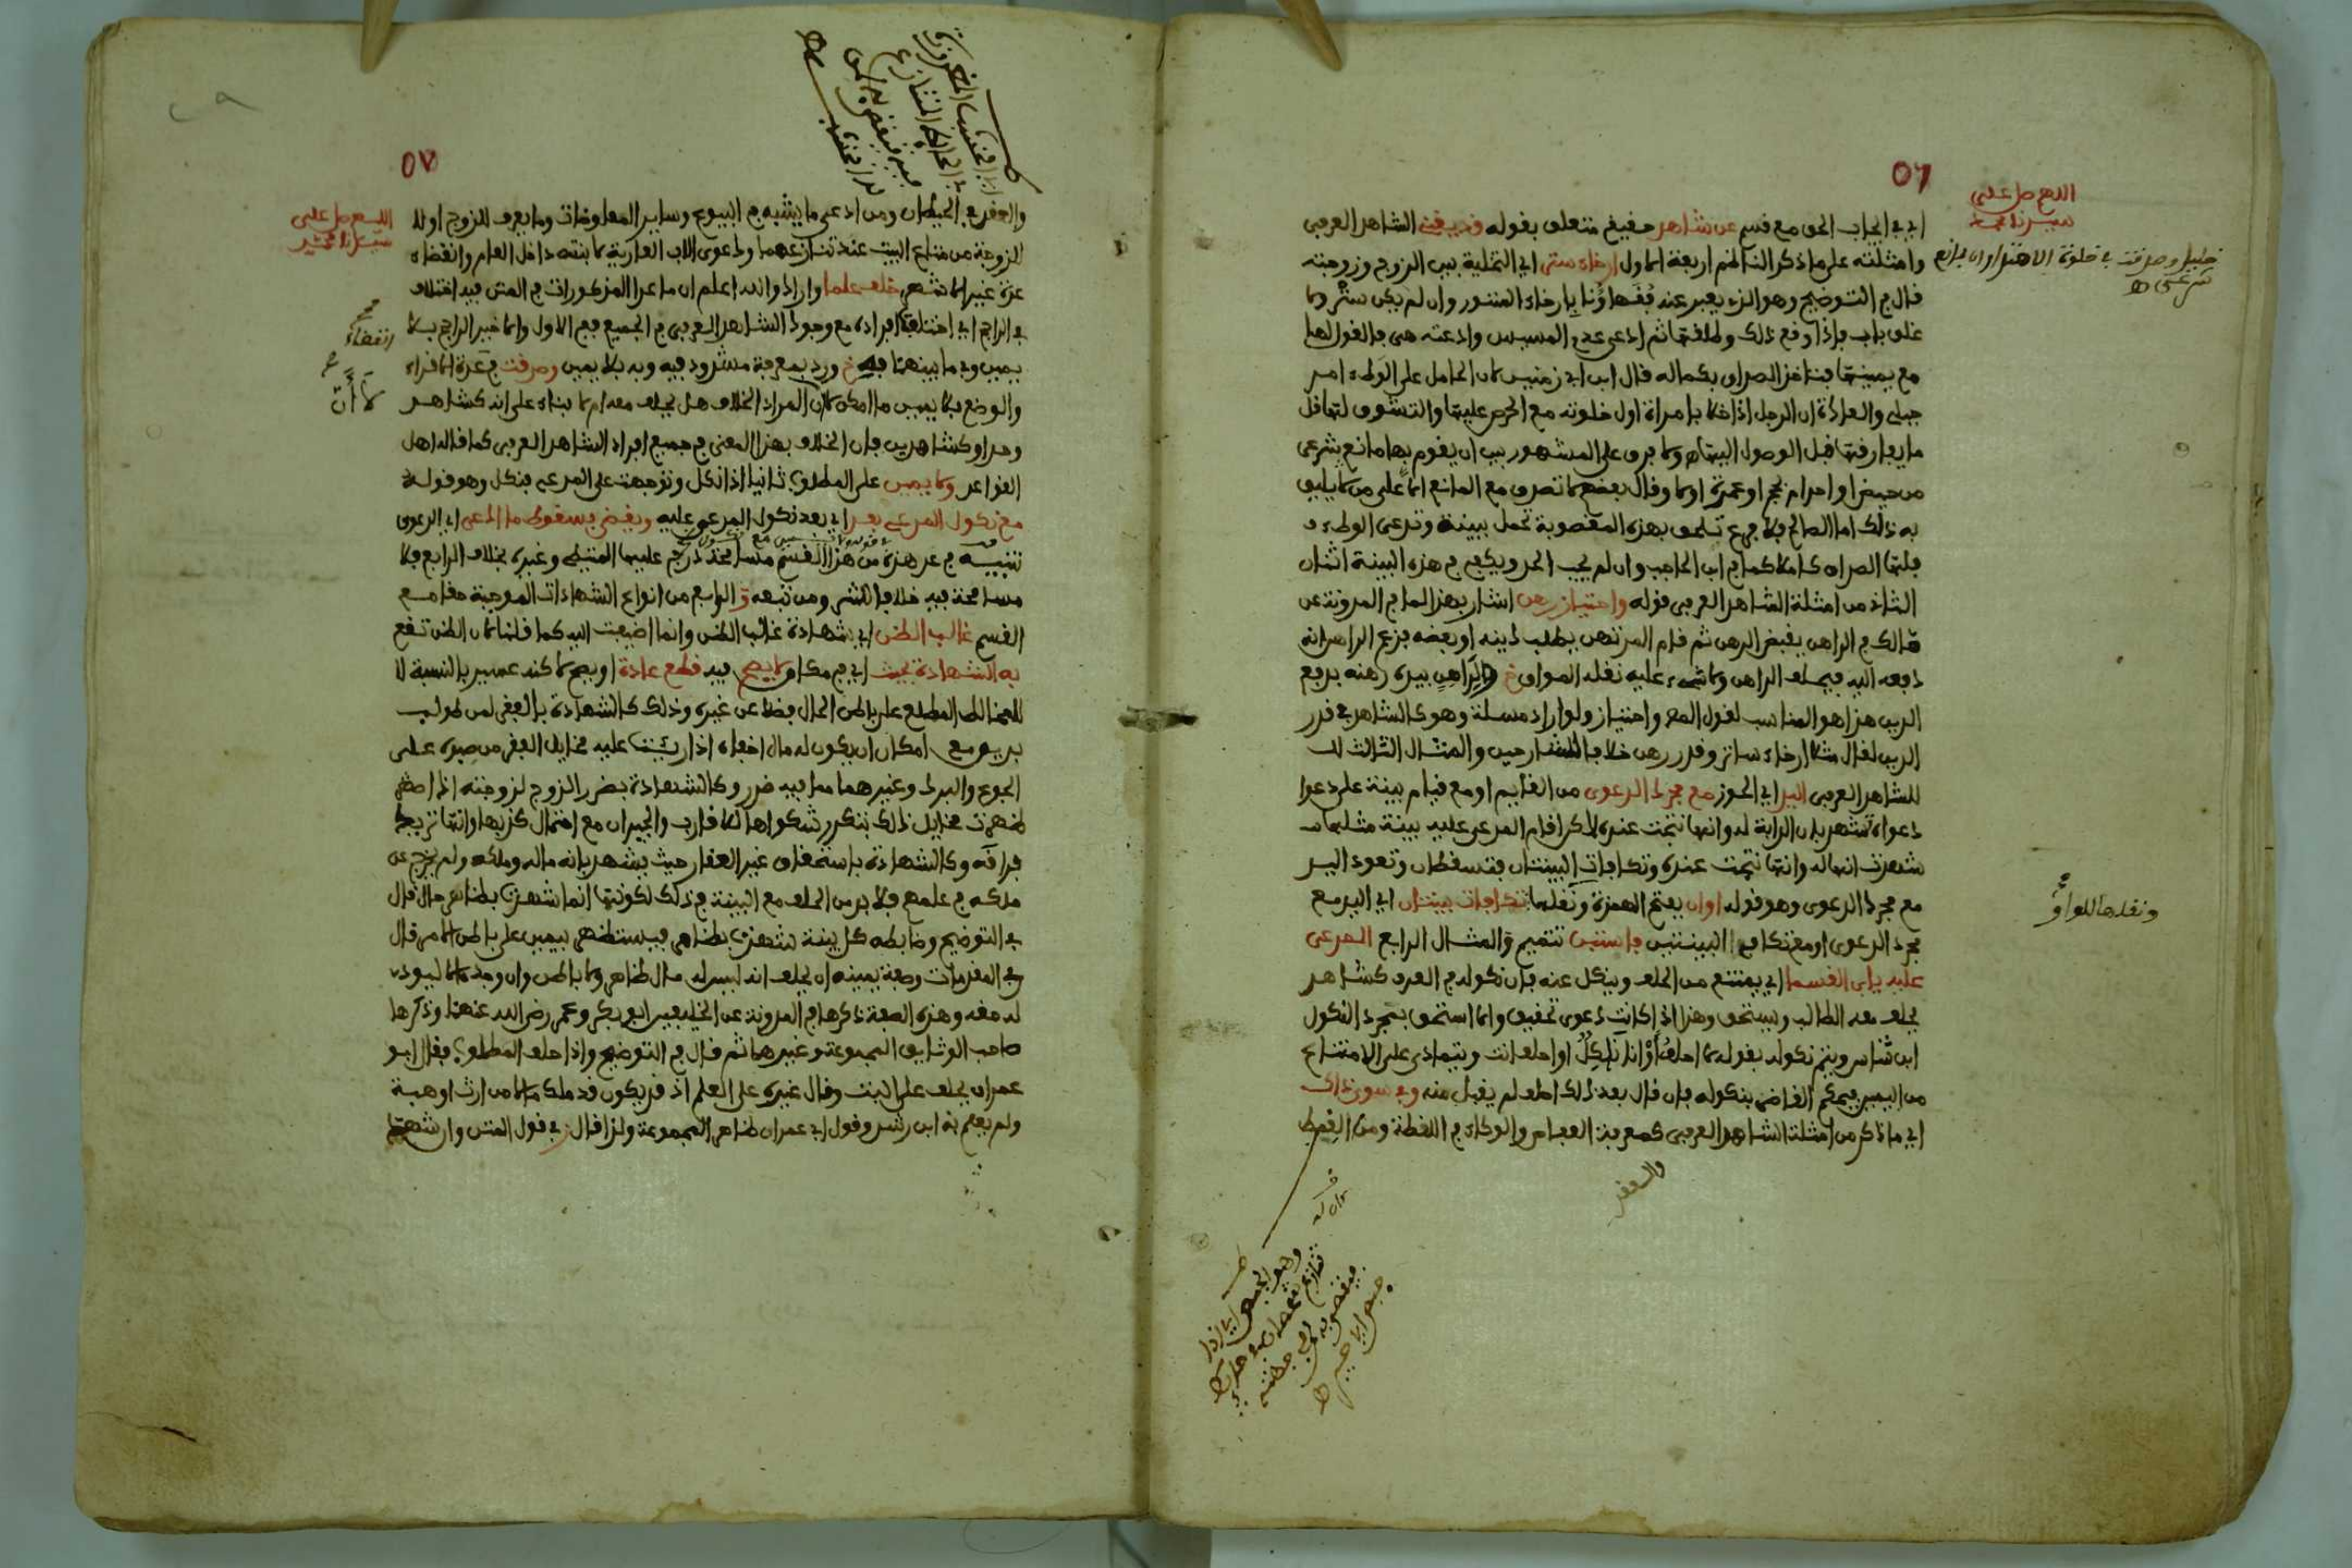 ٥٦
اللهم صل على
سيدنا محمد
اي في ايجاب الحق مع قسم عن شاهد حقيق متعلق بقوله قد يغني الشاهد العرفي
وامثلته على ما ذكر الناظم اربعة الاول ارخاء ستر اي التخلية بين الزوج وزوجته
خليل وصدقت في خلوة الاهتداء وان بمانع
شرعي اهـ
قال في التوضيح وهو الذي يعبر عنه فقهاؤنا بارخاء الستور وان لم يكن ستر ولا
غلق باب فاذا وقع ذلك وطلقها ثم ادعى عدم المسيس وادعته هي فالقول لها
مع يمينها فتاخذ الصداق بكماله قال ابن ابي زمنين لان الحامل على الوطء امر
جبلي والعادة ان الرجل اذا خلا بامراة اول خلوته مع الحرص عليها والتشوف لها قل
ما يفارقها قبل الوصول اليها ولا فرق على المشهور بين ان يقوم بها مانع شرعي
من حيض او احرام بحج او عمرة او لا وقال بعضهم لا تصدق مع المانع الا على من لا يليق
به ذلك اما الصالح فلا فرع تلحق بهذه المغصوبة تحمل ببينة وتدعي الوطء
فلها الصداق كاملا كما في ابن الحاجب وان لم يجب الحد ويكفي في هذه البينة اثنان
الثاني من امثلة الشاهد العرفي قوله واحتياز رهن اشار بهذا لما في المدونة عن
مالك في الراهن يقبض الرهن ثم قام المرتهن يطلب دينه او بعضه فزعم الراهن انه
دفعه اليه فيحلف الراهن ولا شيء عليه نقله المواق خ والراهن بيده رهنه بدفع
الدين هذا هو المناسب لقول المص واحتياز ولو اراد مسئلة وهو كالشاهد في قدر
الدين لقال مثلا ارخاء ساتر وقدر رهن خلافا للشارحين والمثال الثالث
للشاهد العرفي اليد اي الحوز مع مجرد الدعوى من القايم او مع قيام بينة على دعوا
دعواه تشهد بان الدابة له وانها نتجت عنده لاكن اقام المدعى عليه بينة مثلها
شهدت انها له وانها نتجت عنده وتكافات البينتان فتسقطان وتعود اليد
مع مجرد الدعوى وهو قوله اوان بفتح الهمزة ونقلها تكافات بينتان اي اليد مع
ونقلها للواو
مجرد الدعوى او مع تكافي البينتين فاستبن تتميم والمثال الرابع المدعى
عليه يابى القسما اي يمتنع من الحلف وينكل عنه فان نكوله في العرف كشاهد
يحلف معه الطالب ويستحق وهذا اذا كانت دعوى تحقيق والا استحق بمجرد النكول
ابن شاس ويتم نكوله بقوله لا احلف او انا ناكل او احلف انت ويتمادى على الامتناع
من اليمين فيحكم القاضي بنكوله فان قال بعد ذلك احلف لم يقبل منه وفي سوى ذاك
اي ما ذكر من امثلة الشاهد العرفي كمعرفة العفاص والوكاء في اللقطة ومن القمط
والعقد
٥٧
اللهم صل على
سيدنا محمد
والعقد في الحيطان ومن ادعى ما يشبه في البيوع وساير المعاوضات وما يعرف للزوج او للا
للزوجة من متاع البيت عند تنازعهما ودعوى الاب العارية لابنته داخل العام وانقضاء
عدة غير الاشهر خلف علما واراد والله اعلم ان ما عدا المذكورات في المتن فيه اختلاف
في الراجح اي اختلف افراده مع وجود الشاهد العرفي في الجميع ففي الاول والاخير الراجح بلا
انقضاء
يمين وفي ما بينهما به خ ورد بمعرفة مشدود فيه وبه بلا يمين وصدقت في عدة الاقراء
والوضع بلا يمين ما امكن لان المراد الخلاف هل يحلف معه ام لا بناء على انه كشاهد
لا أن
وحد او كشاهدين فان الخلاف بهذا المعنى في جميع افراد الشاهد العرفي كما قاله اهل
القواعد ولا يمين على المطلوب ثانيا اذا نكل وتوجهت على المدعي فنكل وهو قوله
مع نكول المدعي بعد اي بعد نكول المدعى عليه ويقضى بسقوط ما ادعى اي الدعوى
تنبيه في عد هذه من هذا القسم مسامحة درج عليها المتيطي وغيره بخلاف الرابع فلا
مسامحة فيه خلافا للش ومن تبعه والرابع من انواع الشهادات الموجبة حقا مع
القسم غالب الظن اي شهادة غالب الظن وانما اضيفت اليه كما قلنا لان الظن تقع
به الشهادة بحيث اي في مكان لا يصح فيه قطع عادة او يصح لاكنه عسير بالنسبة لا
للمخالط المطلع على باطن الحال فضلا عن غيره وذلك كالشهادة بالفقر لمن طولب
بدين مع امكان ان يكون له مال اخفاه اذا رئيت عليه مخايل الفقر من صبره على
الجوع والبرد وغيرهما مما فيه ضرر وكالشهادة بضرر الزوج لزوجته اذا
ظهرت مخايل ذلك بتكرر شكواها للاقارب والجيران مع احتمال كذبها وانها تريد
فراقه وكالشهادة باستحقاق غير العقار حيث يشهد بانه ماله وملكه ولم يخرج عن
ملكه في علمهم فلا بد من الحلف مع البينة في ذلك لكونها انما شهدت بظاهر حال قال
في التوضيح وضابطه كل بينة شهدت بظاهر فيستظهر بيمين على باطن الامر قال
وفي المقدمات وصفة يمينه ان يحلف انه ليس له مال ظاهر ولا باطن وان وجد مالا ليودين
له حقه وهذه الصفة ذكرها في المدونة عن الخليفتين ابي بكر وعمر رضي الله عنهما وذكرها
صاحب الوثايق المجموعة وغيرهما ثم قال في التوضيح واذا حلف المطلوب فقال ابو
عمران يحلف على البت وقال غيره على العلم اذ قد يكون قد ملك مالا من ارث او هبة
ولم يعلم به ابن رشد وقول ابي عمران ظاهر المجموعة ولذا قال في قول المتن وان شهد